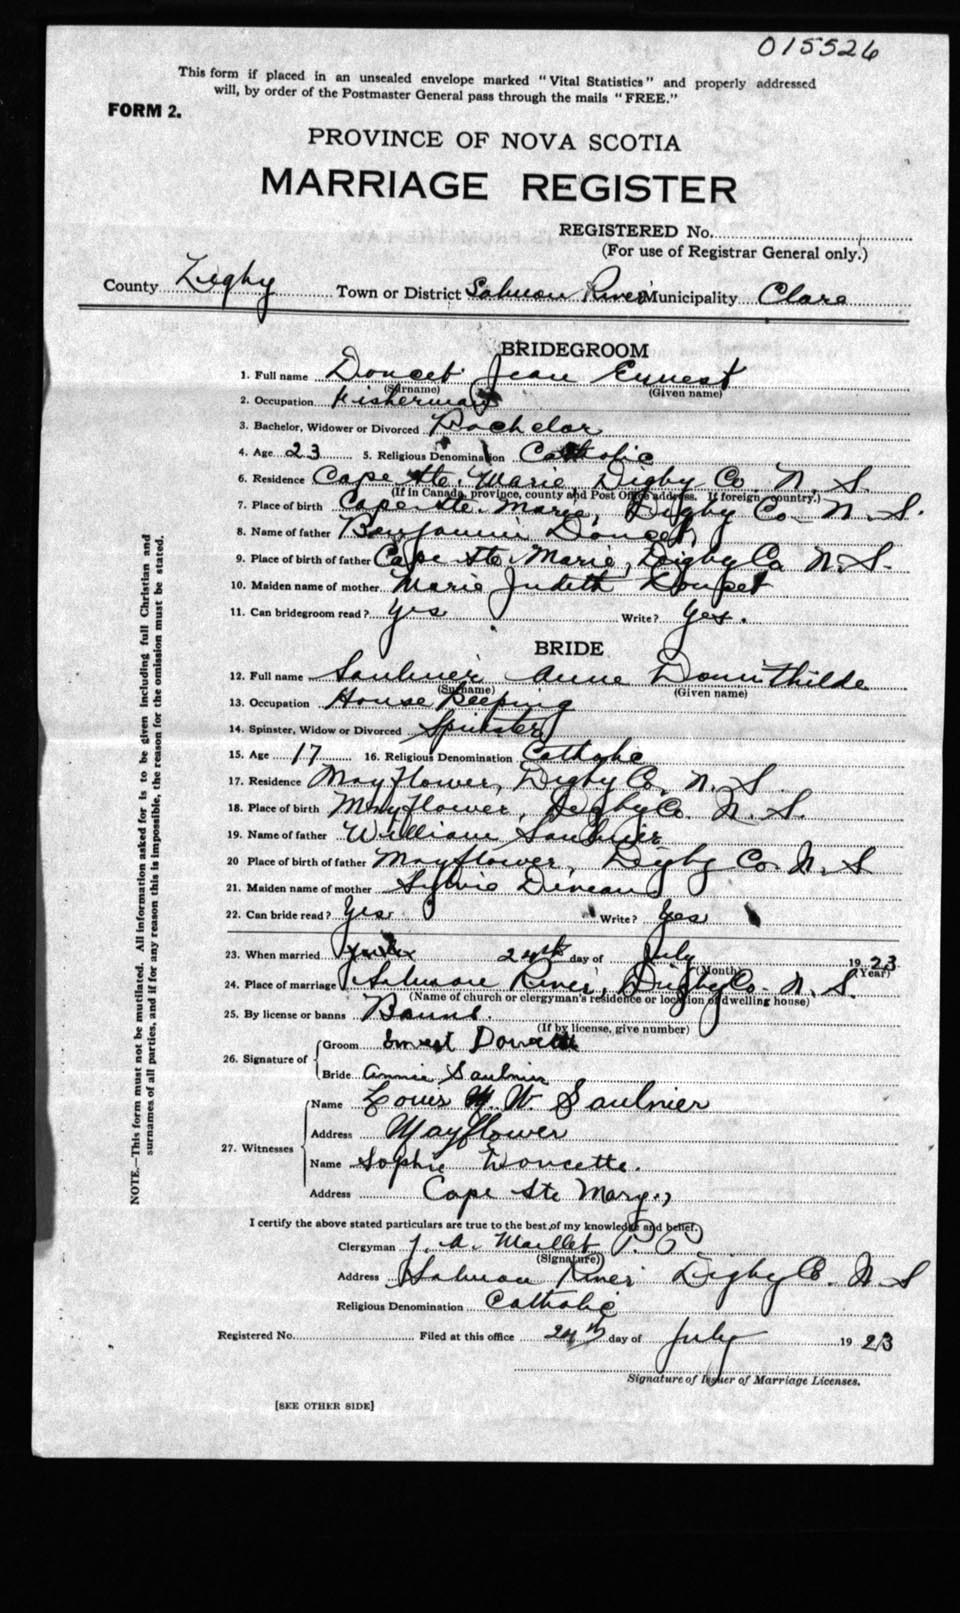 015526
This form if placed in an unsealed envelope marked "Vital Statistics" and properly addressed
will, by order of the Postmaster General pass through the mails "FREE."
FORM 2.
PROVINCE OF NOVA SCOTIA
MARRIAGE REGISTER
REGISTERED No.
(For use of Registrar General only.)
County Digby Town or District Salmon River Municipality Clare
BRIDEGROOM
1. Full name Doucet Jean Ernest
(Surname) (Given name)
2. Occupation Fisherman
3. Bachelor, Widower or Divorced Bachelor
4. Age 23 5. Religious Denomination Catholic
6. Residence Cape Ste. Marie, Digby Co. N. S.
(If in Canada, province, county and Post Office address. If foreign, country.)
7. Place of birth Cape Ste. Marie, Digby Co. N. S.
8. Name of father Benjamin Doucet
9. Place of birth of father Cape Ste. Marie, Digby Co N. S.
10. Maiden name of mother Marie Judith Doucet
11. Can bridegroom read? Yes Write? Yes.
BRIDE
12. Full name Saulnier Anne Domithilde
(Surname) (Given name)
13. Occupation House Keeping
14. Spinster, Widow or Divorced Spinster
15. Age 17 16. Religious Denomination Catholic
17. Residence Mayflower, Digby Co. N. S.
18. Place of birth Mayflower, Digby Co. N. S.
19. Name of father William Saulnier
20 Place of birth of father Mayflower, Digby Co N. S
21. Maiden name of mother Sylvie Duncan
22. Can bride read? Yes Write? Yes
23. When married 24th day of July 1923
(Month) (Year)
24. Place of marriage Salmon River, Digby Co. N. S.
(Name of church or clergyman's residence or location of dwelling house)
25. By license or banns Banns.
(If by license, give number)
26. Signature of Groom Ernest Doucette
Bride Annie Saulnier
27. Witnesses Name Louis W. Saulnier
Address Mayflower
Name Sophie Doucette.
Address Cape Ste Mary.,
I certify the above stated particulars are true to the best of my knowledge and belief.
Clergyman J. A. Maillet P. P
(Signature)
Address Salmon River Digby Co. N. S
Religious Denomination Catholic
Registered No. Filed at this office 24th day of July 1923
Signature of Issuer of Marriage Licenses.
[SEE OTHER SIDE]
NOTE.—This form must not be mutilated. All informations asked for is to be given including full Christian and
surnames of all parties, and if for any reason this is impossible, the reason for the omission must be stated.